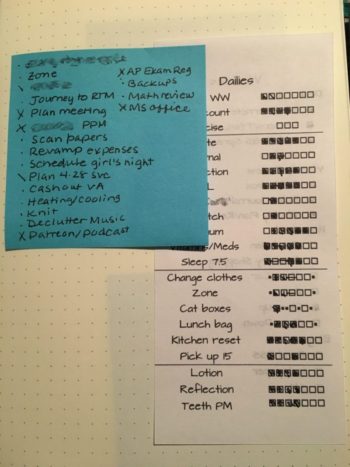 Zone
Journey to RTM
X Plan meeting
X PPM
Scan papers
Revamp expenses
Schedule girl's night
\ Plan 4-28 svc
Cashout VA
Heating/cooling
Knit
Declutter Music
X Patreon/podcast
X AP Exam Reg
\ Backups
\ Math review
X MS office
Dailies
WW
count
cise
te
nal
ction
L
tch
um
Vitamins/Meds
Sleep 7.5
Change clothes
Zone
Cat boxes
Lunch bag
Kitchen reset
Pick up 15
Lotion
Reflection
Teeth PM